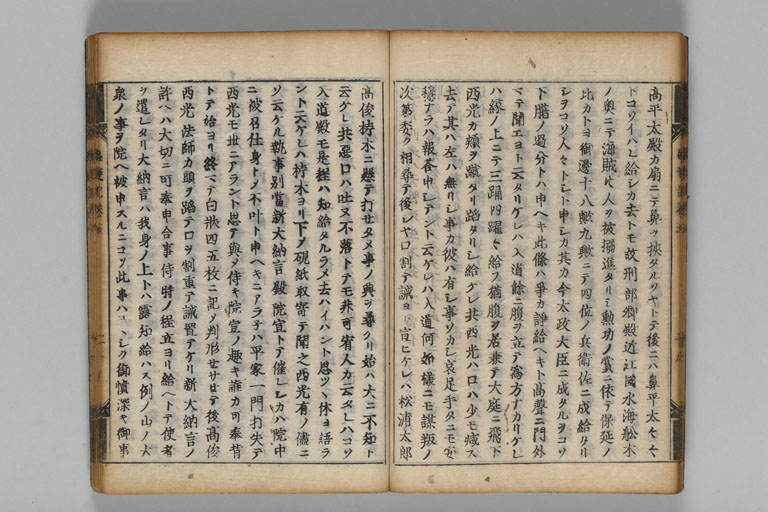 高平太殿カ扇ニテ鼻ヲ挾タルソヤトテ後ニハ鼻平太々々
トコソイハレ給シカ去トモ故刑部卿殿近江國水海船木
ノ奧ニテ海賊 人ヲ被搦進タリシ勲功ノ賞ニ依テ保延ノ
比カトヨ御邊十八歟九歟ニテ四位ノ兵衛佐ニ成給タリ
シヲコソ人々 ト申シカ其カ今太政大臣ニ成タルヲコソ
下臈ノ過分トハ申ヘキ此條ハ爭カ諍給ヘキト高聲ニ門外
マテ聞エヨト云タリケレハ入道餘ニ腹ヲ立テ 方ナカリケレ
ハ縁ノ上ニテ三踊四躍 給ス猶腹ヲ居兼テ大庭ニ飛下
西光カ頬ヲ蹴タリ蹈タリシ給ケレ共西光ハ口ハ少モ減ス
去テ其ハ左ハ無リシ事カ彼ハ有シ事ソカシ哀足手タニモ安
穩ナラハ報答申シテント云ケレハ入道何如樣ニモ謀叛ノ
次第委ク相尋テ後シヤ口割テ誡ヨ 宣ヒケレハ松浦太郎
高俊 木ニ懸テ打セタメ事ノ興ヲ尋ケリ始ハ大ニ不知ト
云ケレ共惡口ハ吐ヌ不落トテモ非可宥人カ云タレハコソ
入道殿モ是程ハ知給タルラメ去ハイハント思ツヽ休ヨ語ラ
ント云ケレハ 木ヨリ下 硯紙取寄テ聞之西光有ノ儘ニ
ソ云ケル執事別當新大納言殿院宣トテ催シシカハ院中
ニ被召仕身トノ不叶ト申ヘキニアラ子ハ平家一門打失テ
西光モ世ニアラント思テ與ノ侍キ院宣ノ趣キ誰カ可奉背
トテ始ヨリ終マテ白狀四五枚ニ記メ判形セサセテ後高俊
西光法師カ頭ヲ蹈テ口ヲ割重テ誡置テケリ新大納言ノ
許ヘハ大切ニ可奉申合事侍 時ノ程立ヨリ給ヘトテ使者
ヲ遣シタリ大納言ハ我身ノ上トハ露知給ハス例ノ山ノ大
衆ノ事ヲ院ヘ被申スルニコソ此事ハユヽシク御憤深キ御事